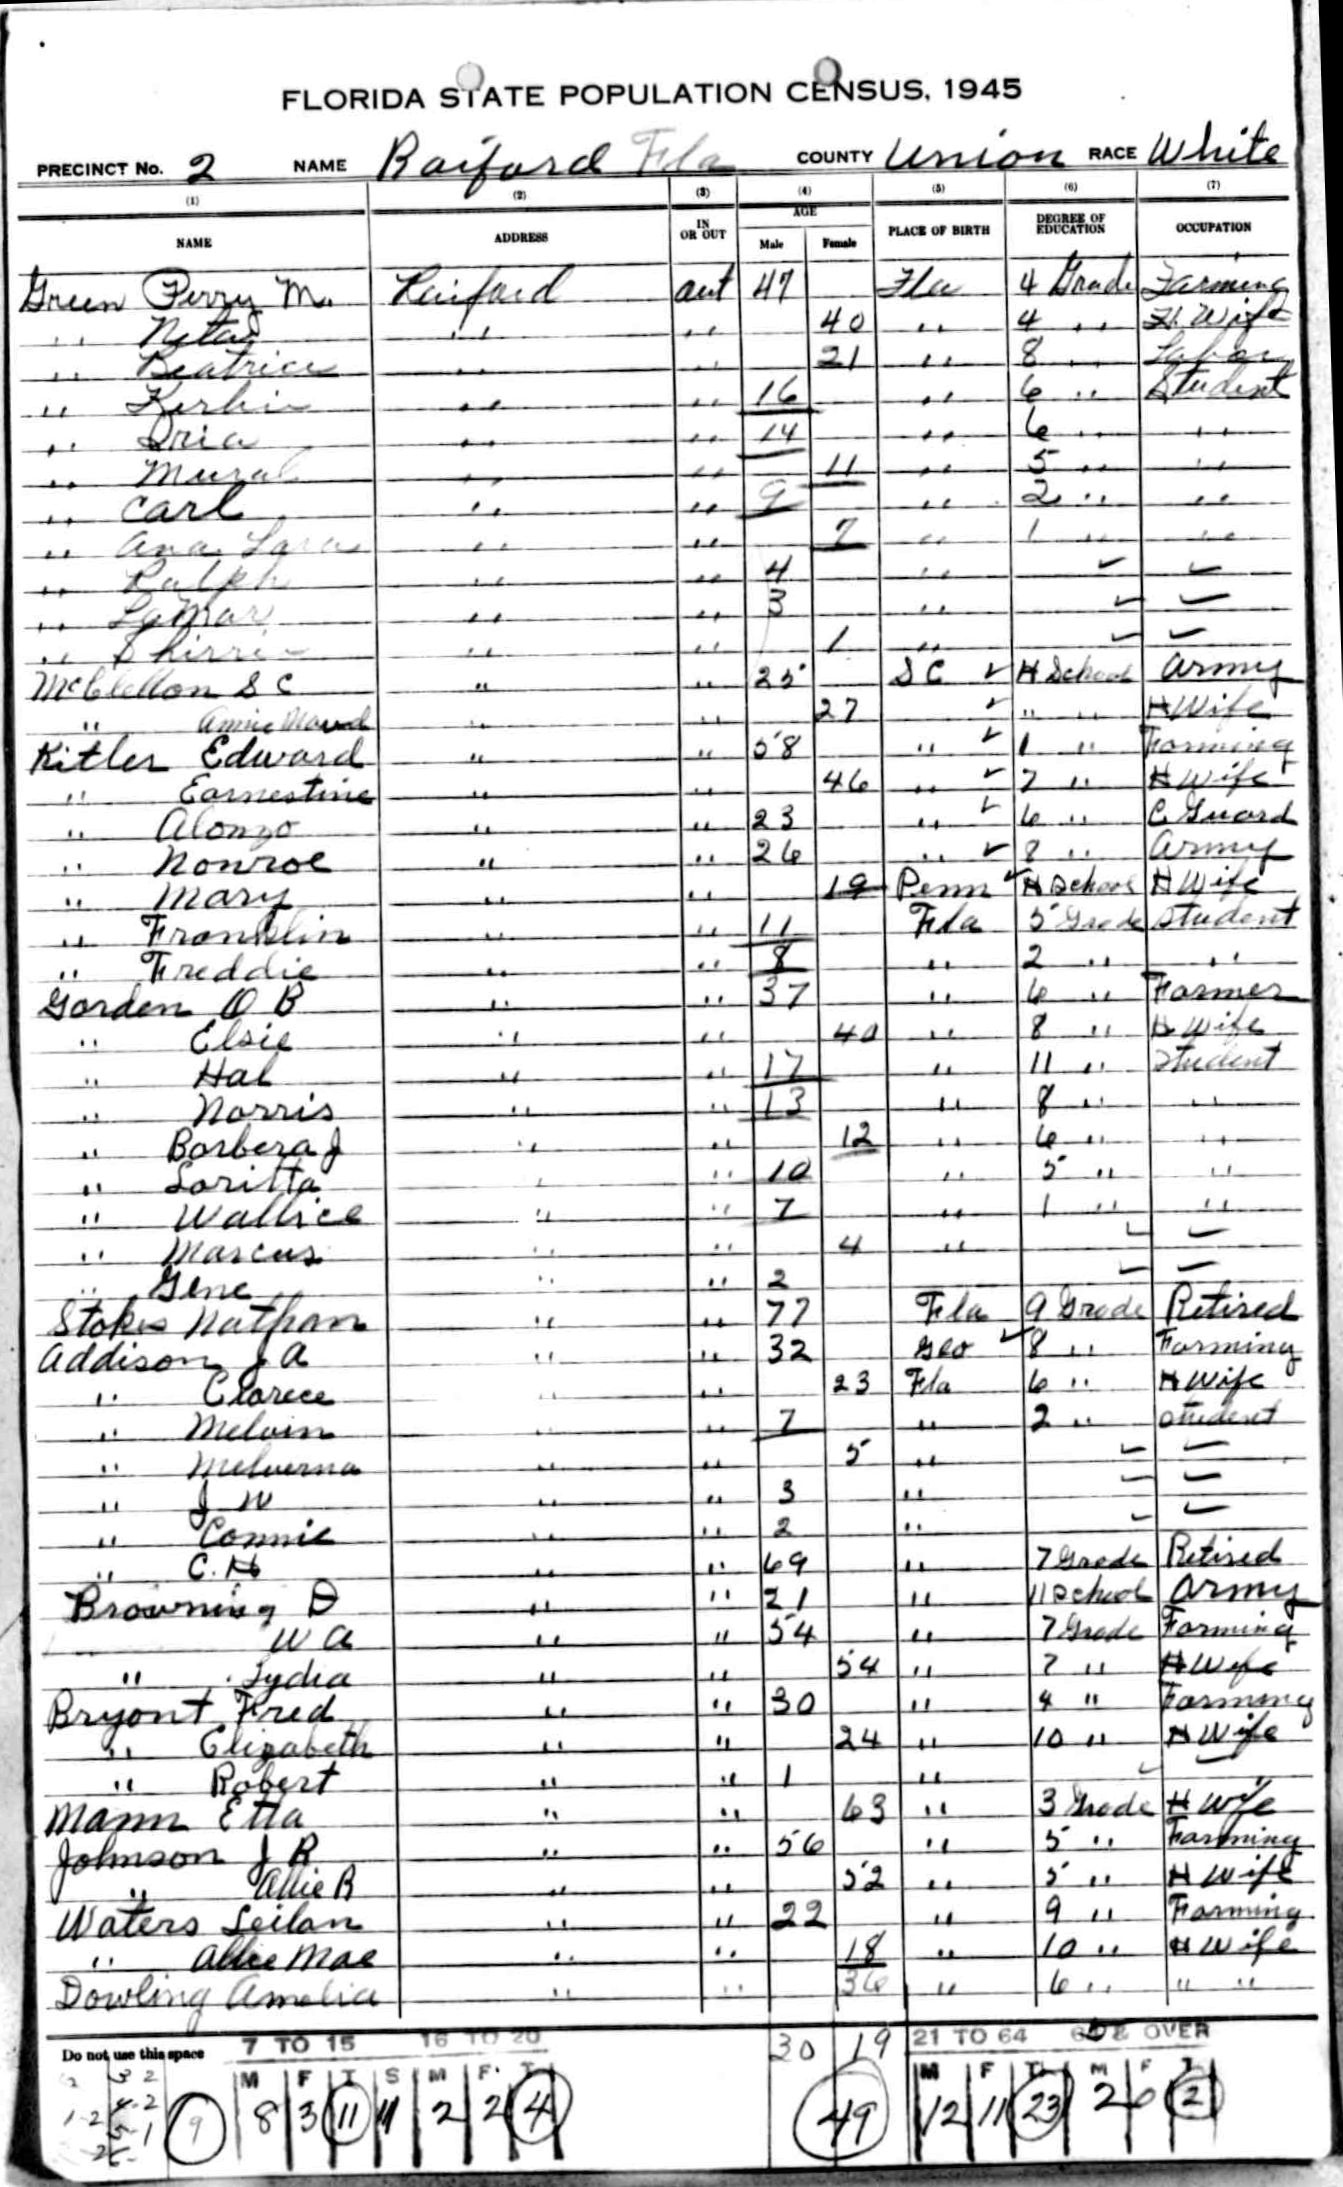 FLORIDA STATE POPULATION CENSUS, 1945
PRECINCT No. 2 NAME Raiford Fla COUNTY Union RACE White
(1) (2) (3) (4) (5) (6) (7)
NAME ADDRESS IN OR OUT AGE Male Female PLACE OF BIRTH DEGREE OF EDUCATION OCCUPATION
Green Perry M. Raiford out 47 Fla 4 Grade Farming
" Neta " " 40 " 4 " H. Wife
" Beatrice " " 21 " 8 " Labor
" " " 16 " 6 " Student
" " " 14 " 6 " "
" Mural " " 11 " 5 " "
" Carl " " 9 " 2 " "
" Ana " " 7 " 1 " "
" Ralph " " 4 " ✓ ✓
" LaMar " " 3 " ✓ ✓
" " " 1 " ✓ ✓
McClellon S C " " 25 S C ✓ H School Army
" Annie Maud " " 27 ✓ " " H Wife
Kitler Edward " " 58 " ✓ 1 " Farming
" Earnestine " " 46 " ✓ 7 " H Wife
" Alonzo " " 23 " ✓ 6 " C Guard
" Nonroe " " 26 " ✓ 8 " Army
" Mary " " 19 Penn ✓ H School H Wife
" Franklin " " 11 Fla 5 Grade Student
" Freddie " " 8 " 2 " "
Gorden O B " " 37 " 6 " Farmer
" Elsie " " 40 " 8 " H Wife
" Hal " " 17 " 11 " Student
" Norris " " 13 " 8 " "
" Barbera J " " 12 " 6 " "
" Loritta " " 10 " 5 " "
" Wallice " " 7 " 1 " "
" Marcus " " 4 " ✓ ✓
" Gene " " 2 ✓ ✓
Stokes Nathan " " 77 Fla 9 Grade Retired
Addison J A " " 32 Geo ✓ 8 " Farming
" Clarece " " 23 Fla 6 " H Wife
" Melvin " " 7 " 2 " Student
" Melverna " " 5 " ✓ ✓
" J W " " 3 " ✓ ✓
" Connie " " 2 " ✓ ✓
" C. H " " 69 " 7 Grade Retired
Browning D " " 21 " 11 School Army
W A " " 54 " 7 Grade Farming
" Lydia " " 54 " 7 " H Wife
Bryant Fred " " 30 " 4 " Farming
" Elizabeth " " 24 " 10 " H Wife
" Robert " " 1 " ✓ ✓
Mann Etta " " 63 " 3 Grade H Wife
Johnson J R " " 56 " 5 " Farming
" Allie B " " 52 " 5 " H Wife
Waters Leilan " " 22 " 9 " Farming
" Allie Mae " " 18 " 10 " H Wife
Dowling Amelia " " 36 " 6 " " "
Do not use this space 7 TO 15 16 TO 20 30 19 21 TO 64 65 & OVER
M F T S M F T M F T M F T
9 8 3 11 11 2 2 4 49 12 11 23 2 0 2